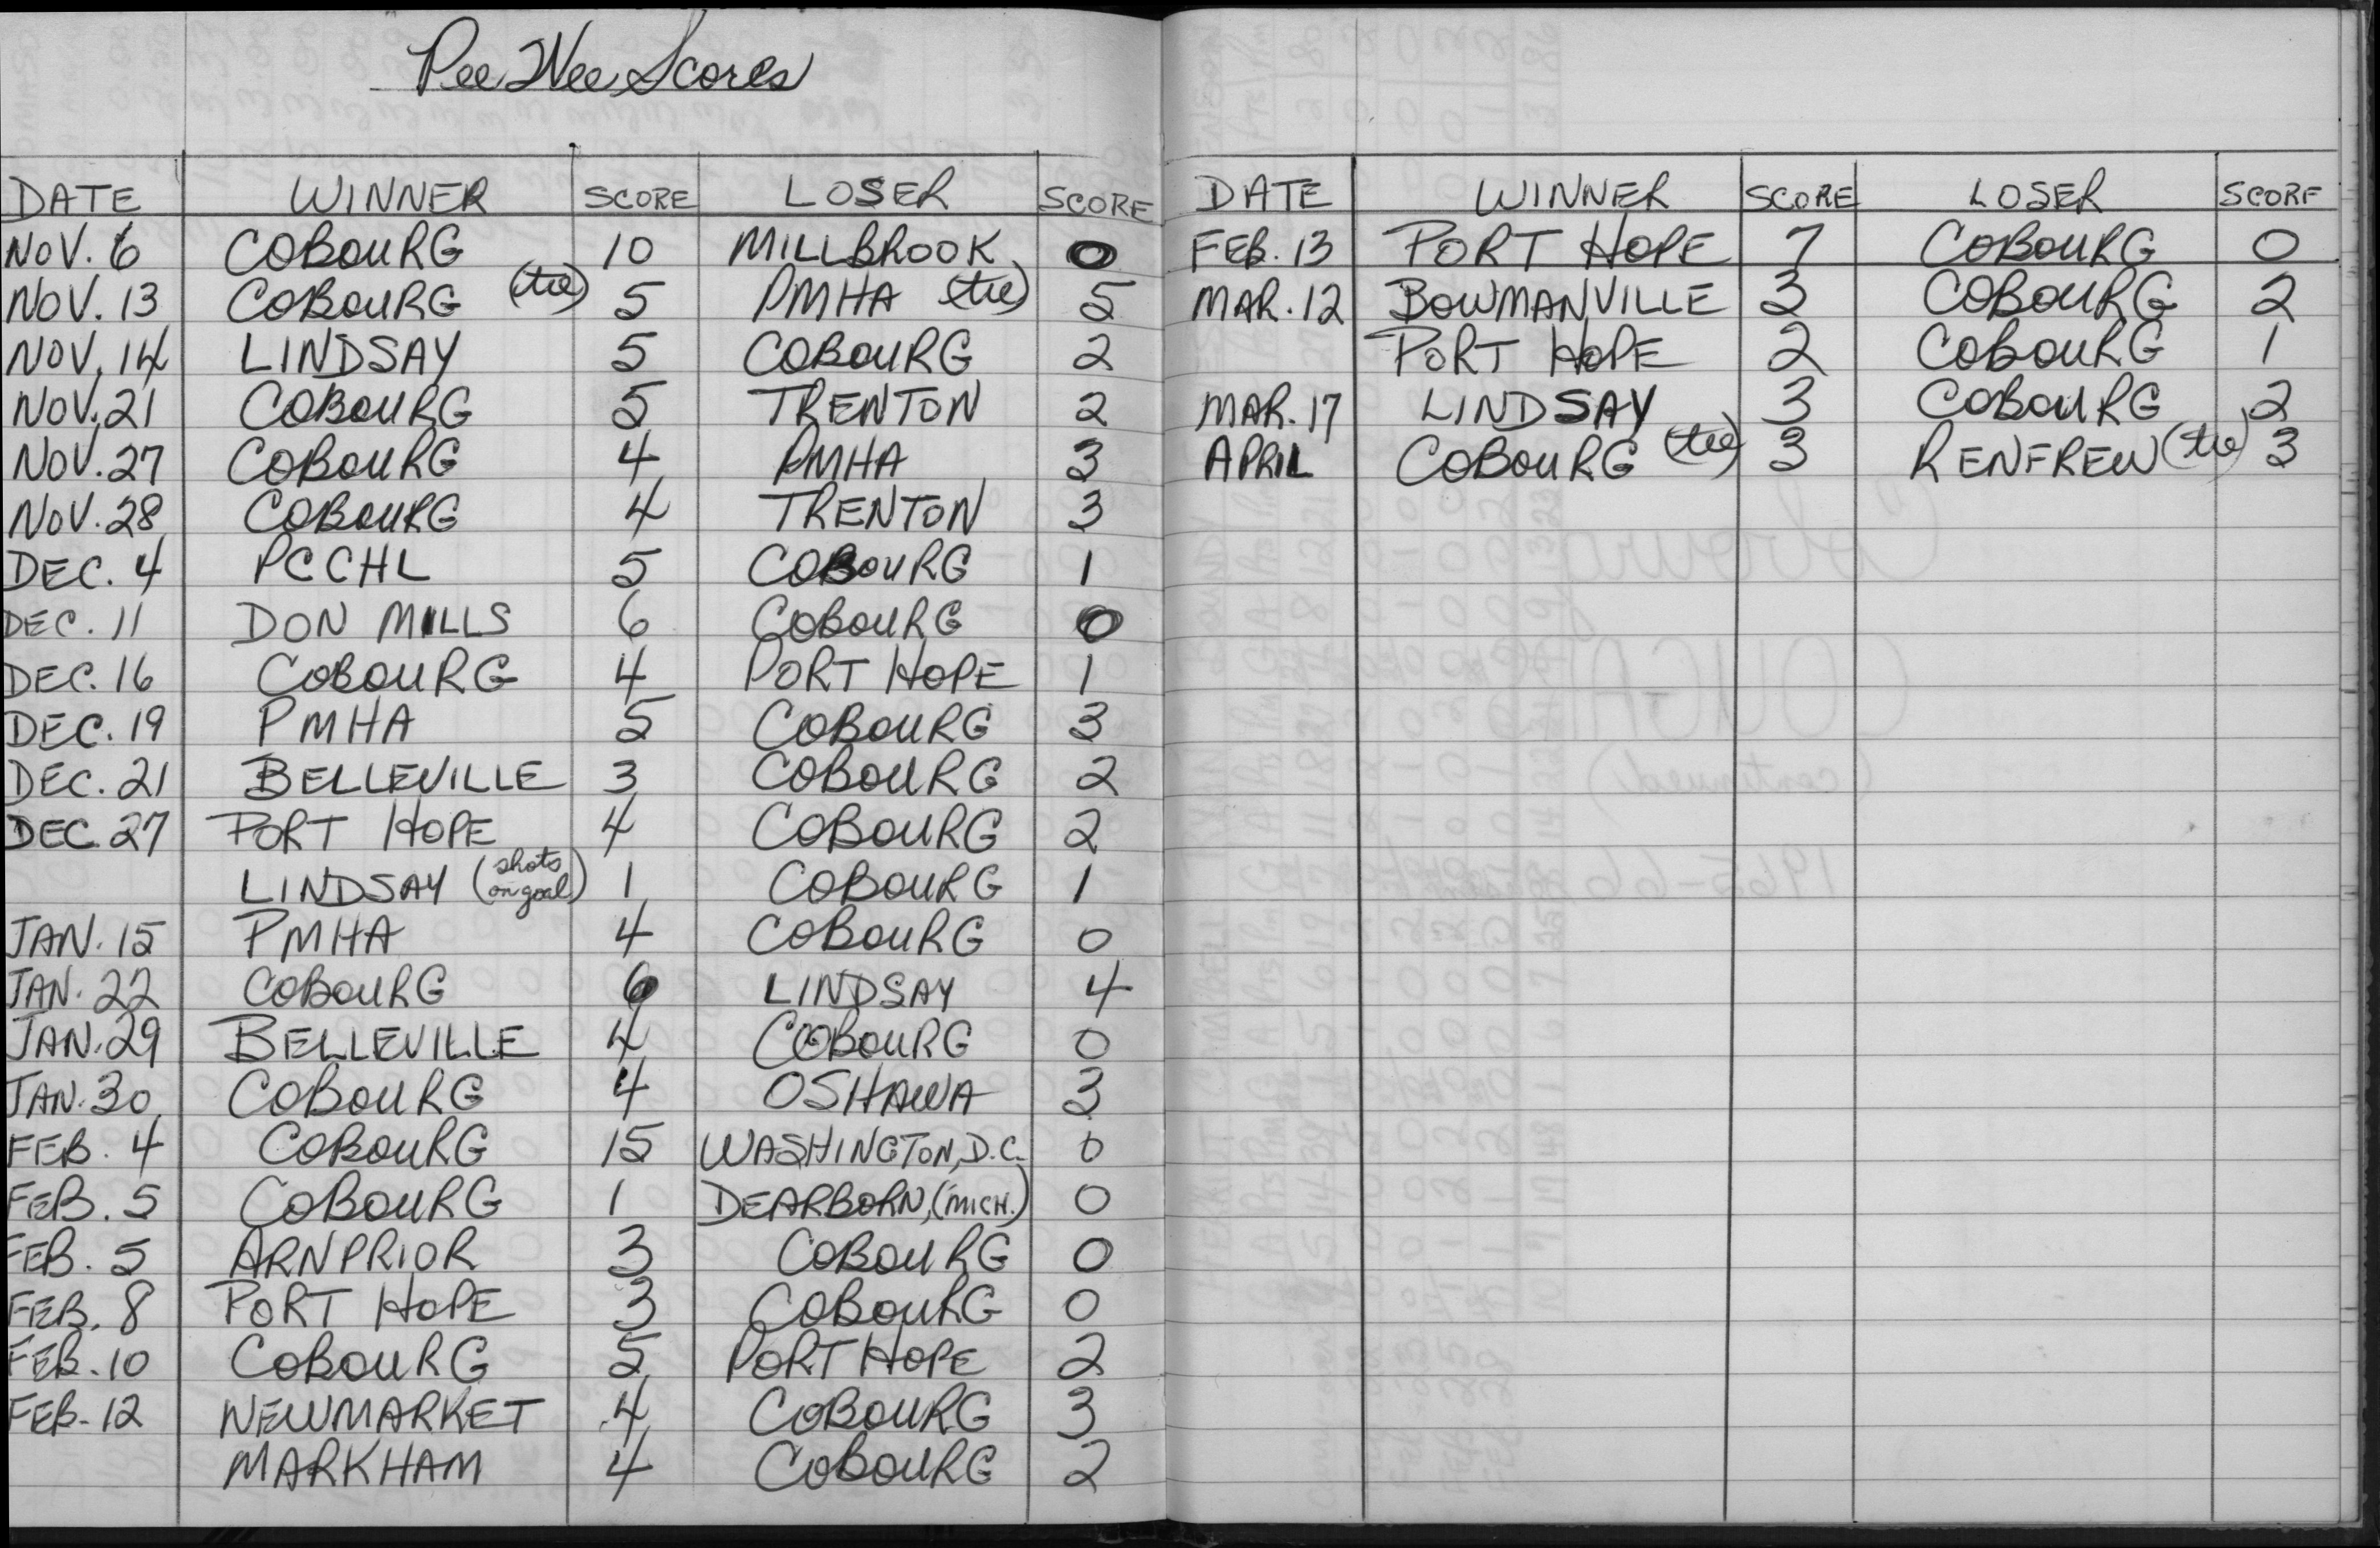 Pee Wee Scores
DATE WINNER SCORE LOSER SCORE
NOV. 6 COBOURG 10 MILLBROOK 0
NOV. 13 COBOURG (tie) 5 PMHA (tie) 5
NOV. 14 LINDSAY 5 COBOURG 2
NOV. 21 COBOURG 5 TRENTON 2
NOV. 27 COBOURG 4 PMHA 3
NOV. 28 COBOURG 4 TRENTON 3
DEC. 4 PCCHL 5 COBOURG 1
DEC. 11 DON MILLS 6 COBOURG 0
DEC. 16 COBOURG 4 PORT HOPE 1
DEC. 19 PMHA 5 COBOURG 3
DEC. 21 BELLEVILLE 3 COBOURG 2
DEC. 27 PORT HOPE 4 COBOURG 2
LINDSAY (shots on goal) 1 COBOURG 1
JAN. 15 PMHA 4 COBOURG 0
JAN. 22 COBOURG 6 LINDSAY 4
JAN. 29 BELLEVILLE 4 COBOURG 0
JAN. 30 COBOURG 4 OSHAWA 3
FEB. 4 COBOURG 15 WASHINGTON, D.C. 0
FEB. 5 COBOURG 1 DEARBORN, (MICH.) 0
FEB. 5 ARNPRIOR 3 COBOURG 0
FEB. 8 PORT HOPE 3 COBOURG 0
FEB. 10 COBOURG 5 PORT HOPE 2
FEB. 12 NEWMARKET 4 COBOURG 3
MARKHAM 4 COBOURG 2
DATE WINNER SCORE LOSER SCORE
FEB. 13 PORT HOPE 7 COBOURG 0
MAR. 12 BOWMANVILLE 3 COBOURG 2
PORT HOPE 2 COBOURG 1
MAR. 17 LINDSAY 3 COBOURG 2
APRIL COBOURG (tie) 3 RENFREW (tie) 3